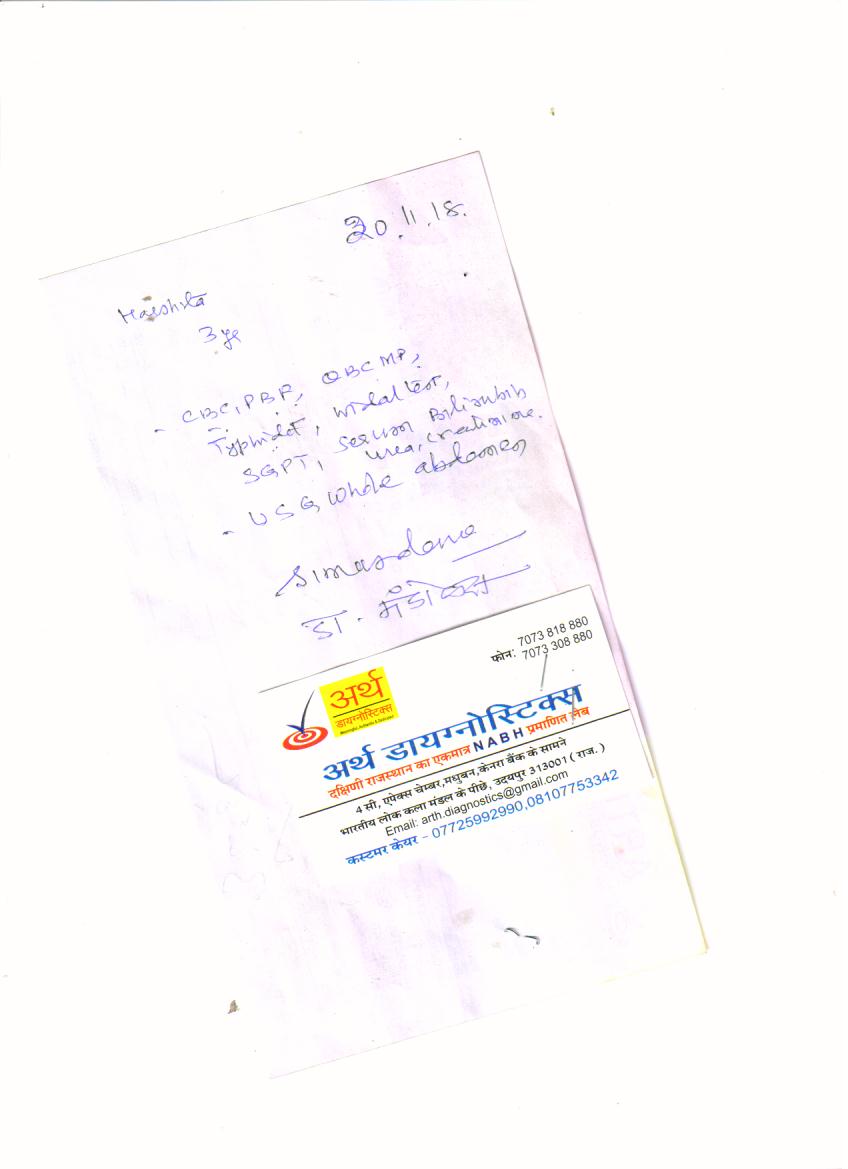 20.11.18.
Harshita
3 ye
- CBC, PBF, QBC MP,
Typhidot, widal test,
SGPT, serum Bilirubin
urea, creatinine.
- USG whole abdomen
डा.
7073 818 880
फोन: 7073 308 880
अर्थ
डायग्नोस्टिक्स
अर्थ डायग्नोस्टिक्स
दक्षिणी राजस्थान का एकमात्र NABH प्रमाणित लेब
4 सी, एपेक्स चेम्बर,मधुबन,केनरा बैंक के सामने
भारतीय लोक कला मंडल के पीछे, उदयपुर 313001 ( राज. )
Email: arth.diagnostics@gmail.com
कस्टमर केयर - 07725992990,08107753342